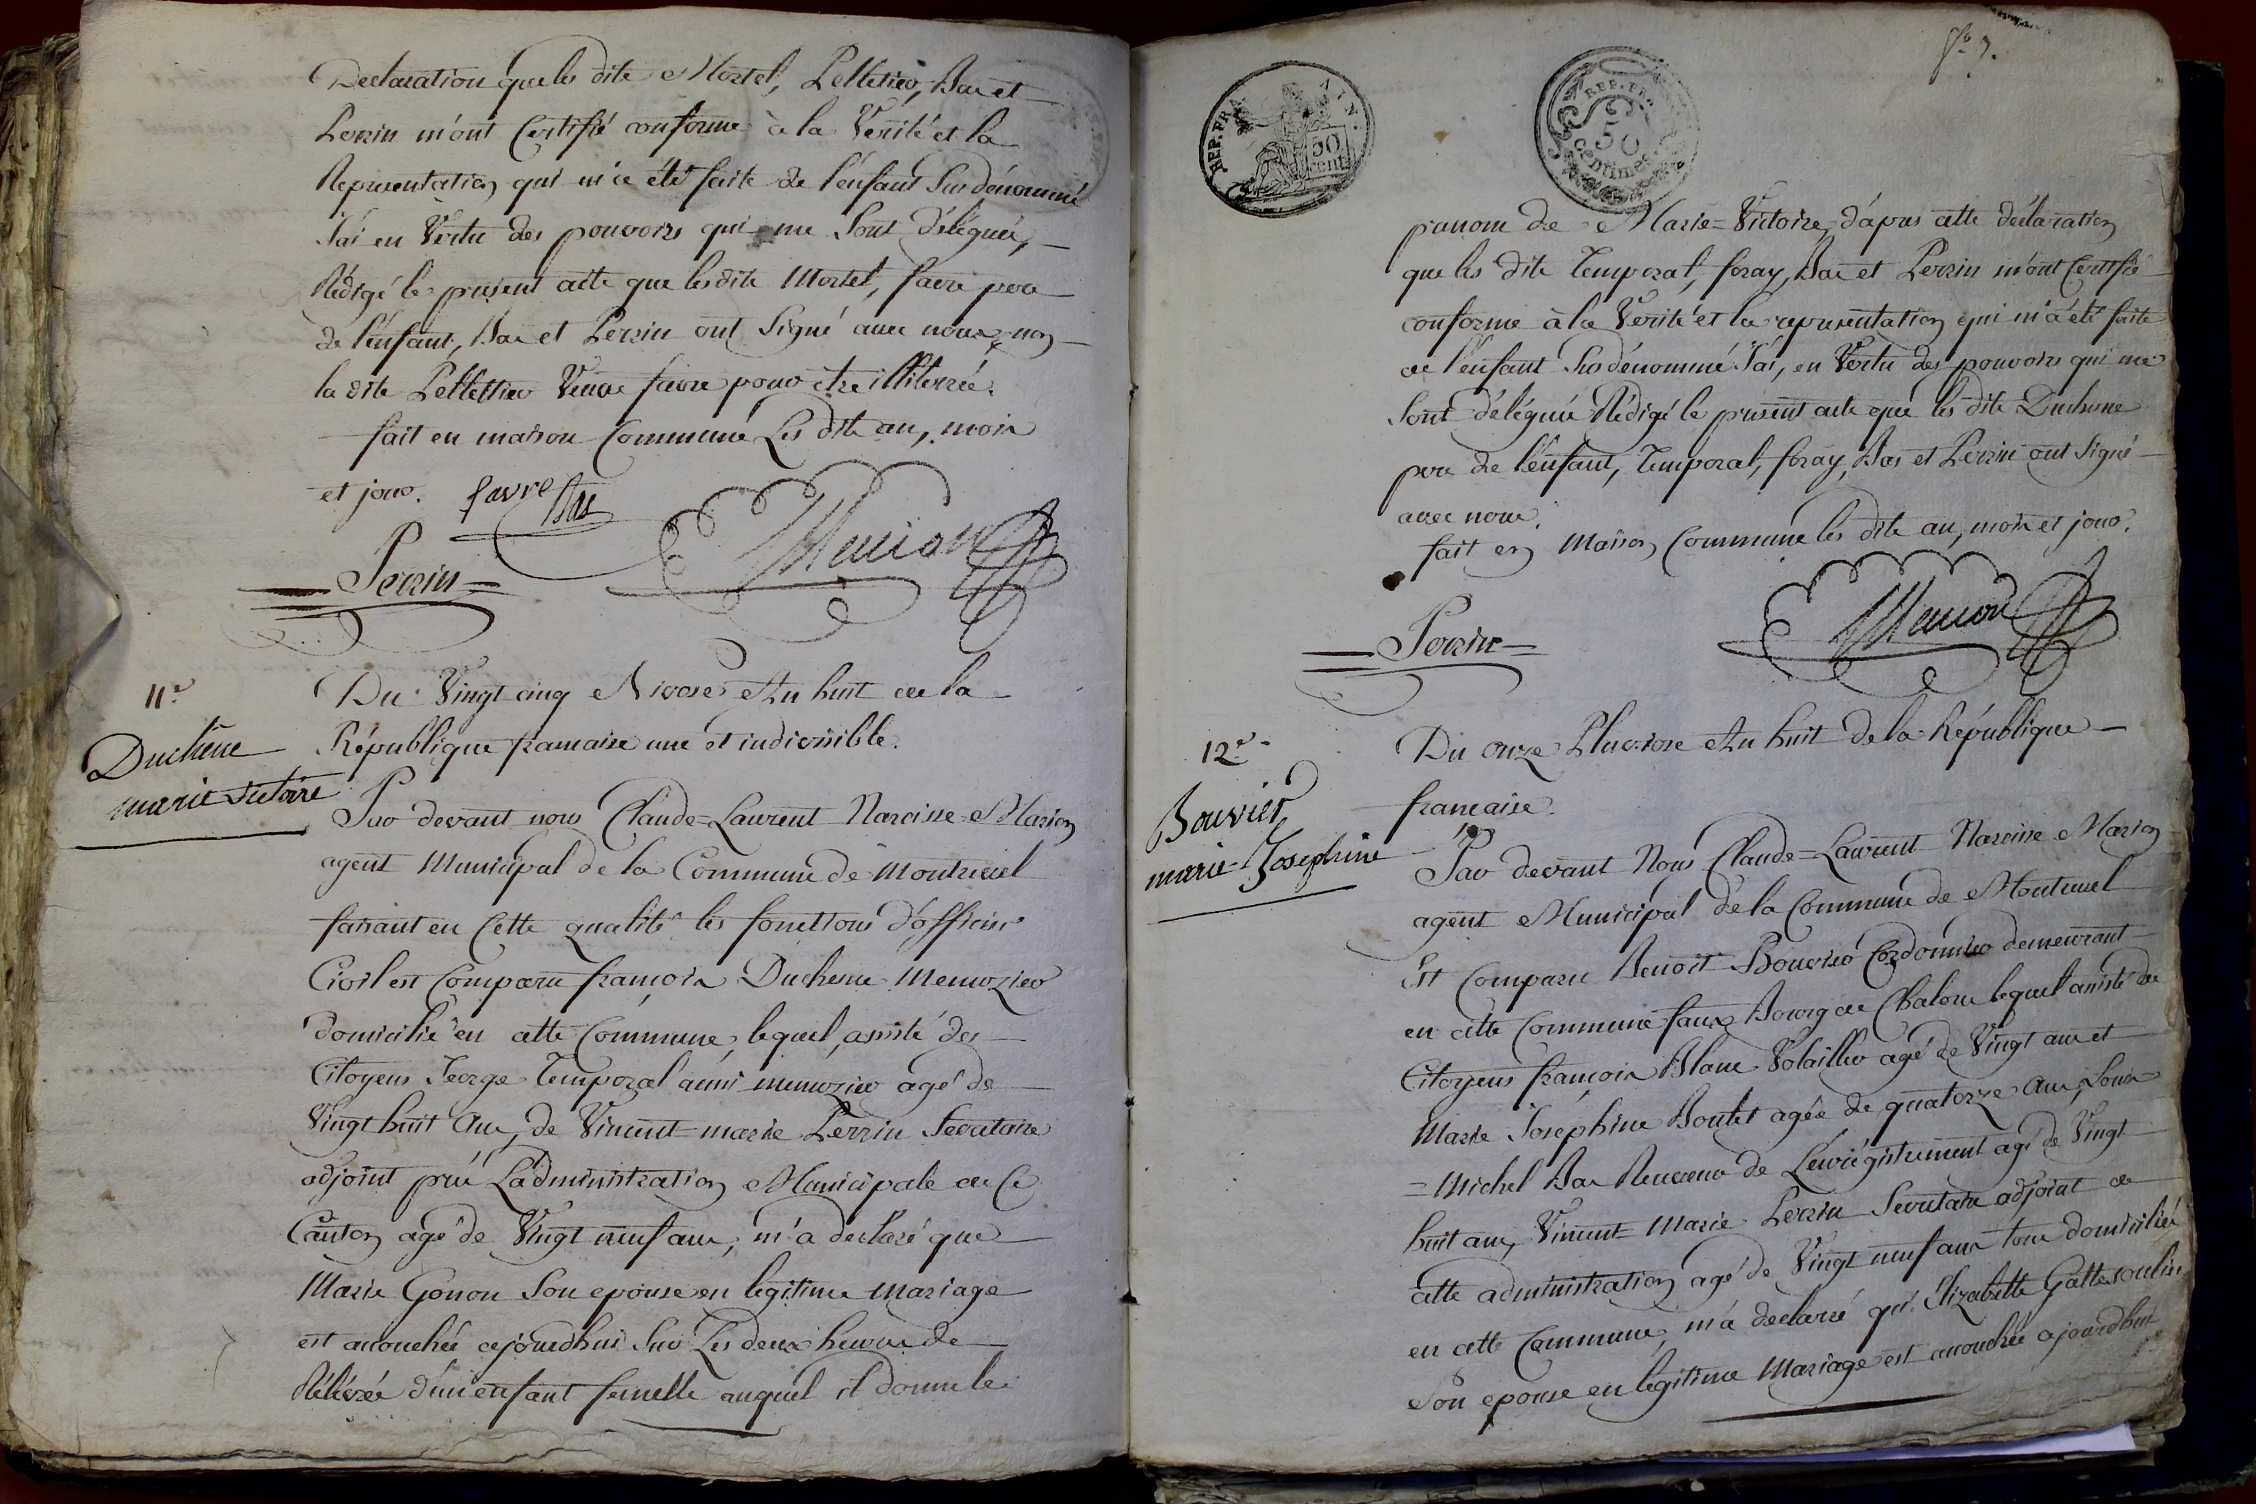 Declaration que les dits Mortel, Pelletier, Bas et
Perrin m'ont Certifié conforme à la Vérité et la
Représentation qui m'a été faite de l'énfant Sus dénommé
J'ai en Vertu des pouvoirs qui me Sont délégués,
Rédigé le présent acte que les dits Mortel, favre pere
de l'énfant, Bas et Perrin ont Signé avec nous, non
la dite Pellettier Veuve favre pour être illiterée.
fait en maison Commune Les dits an, mois
et jour. favre Bas
Perrin Marion
11e
Duchêne
marie victoire
Du Vingt cinq Nivose An huit de la
République francaise une et indivisible.
Par devant nous Claude=Laurent Narcisse Marion
agent Municipal de la Commune de Montluel
faisant en Cette qualité les fonctions d'officier
Civil est Comparu françois Duchesne Menuzier
domicilié en cette Commune, lequel, assisté des
Citoyens George Temporal aussi menuzier agé de
Vingt huit ans, de Vincent=marie Perrin Secretaire
adjoint près L'administration Municipale de Ce
Canton agé de Vingt neuf ans, m'a declaré que
Marie Gonon Son epouse en legitime Mariage
est accouchée cejourdhui Sur Les deux heures de
Rélévée d'un enfant femelle auquel il donne le
fo. 7.
REP. FRA 50 cent
REP. FRA. 50 centimes
prenom de Marie=Victoire, d'après cette déclaration
que les dits Temporal, foray, Bas et Perrin m'ont Certifié
conforme à la Vérité et la représentation qui m'a été faite
de l'enfant Sus dénommé J'ai, en Vertu des pouvoirs qui me
Sont délégués Rédigé le présent acte que les dits Duchesne
pere de l'énfant, Temporal, foray, Bas et Perrin ont Signé
avec nous.
fait en Maison Commune les dits an, mois et jour.
Perrin Marion
12e
Bouvier
marie-Josephine
Du onze Pluviose An huit de la République
francaise.
Par devant Nous Claude=Laurent Narcisse Marion
agent Municipal de la Commune de Montluel
Est Comparu Benoit Bouvier Cordonnier demeurant
en cette Commune faux Bourg de Chalons lequel assisté de
Citoyens françois Blanc Volailler agé de Vingt ans et
Marie Joséphine Boulet agée de quatorze ans, Louis
=Michel Bas Receveur de L'enregistrement agé de Vingt
huit ans, Vincent=Marie Perrin Secretaire adjoint de
cette administration agé de Vingt neuf ans tous domiciliés
en cette Commune, m'a declaré qu'Elizabette
Son epouse en légitime Mariage est accouchée ajourdhui